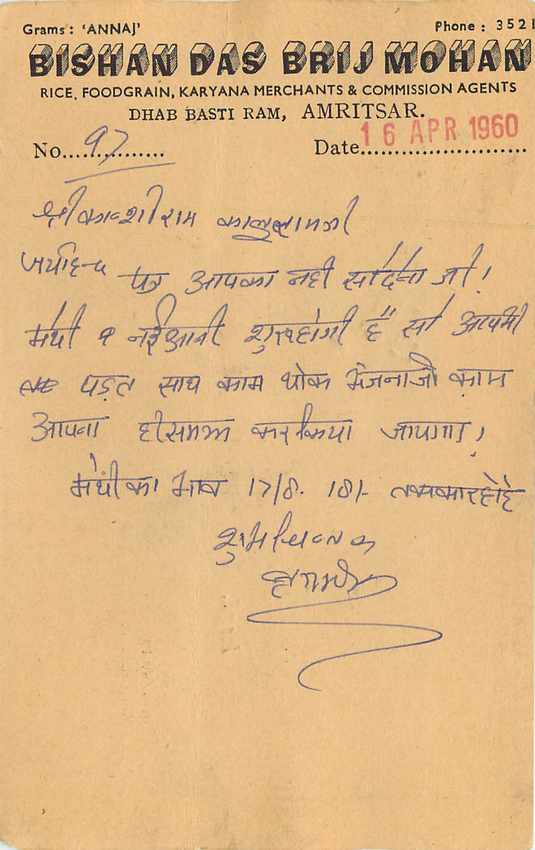 Grams : 'ANNAJ' Phone : 3521
BISHAN DAS BRIJ MOHAN
RICE, FOODGRAIN, KARYANA MERCHANTS & COMMISSION AGENTS
DHAB BASTI RAM, AMRITSAR.
No....97............. Date....16 APR 1960
श्री काशीराम कालूरामजी
पत्र आपका नही सो देना जी।
मेथी १ नई आनी शुरू होगी है सो आपभी
पड़त साथ काम थोक भेजनाजी काम
आपना ही समझ कर किया जाएगा।
मेथी का भाव 17/8. 18/-
शुभचिन्तक